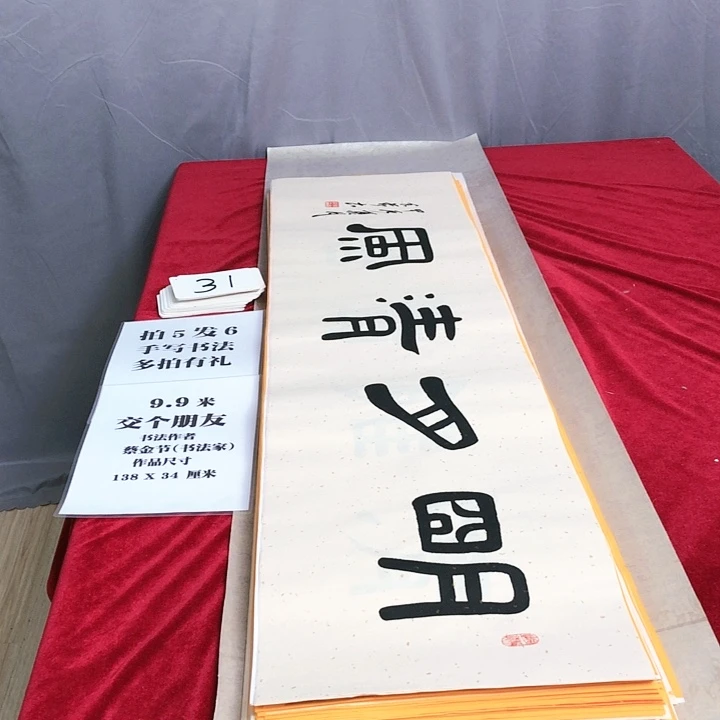 明月清風
31
拍5发6
手写书法
多拍有礼
9.9 米
交个朋友
书法作者
蔡金节(书法家)
作品尺寸
138 X 34 厘米